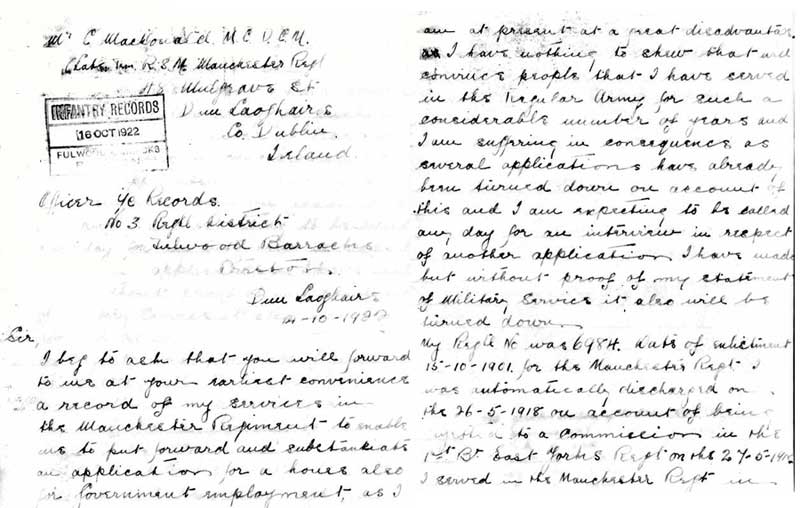 Mr C Mackonald. M.C. D.C.M.
Late R.S.M. Manchester Regt
Mulgrave St
Dun Laoghaire
Co. Dublin.
Ireland.
INFANTRY RECORDS
16 OCT 1922
FULWOOD BARRACKS
Officer i/c Records.
No 3 Regtl District
Fulwood Barracks
Preston.
Dun Laoghaire
-10-1922
Sir,
I beg to ask that you will forward
to me at your earliest convenience
a record of my services in
the Manchester Regiment to enable
me to put forward and substantiate
an application for a house also
for Government employment, as I
am at present at a great disadvantage
as I have nothing to shew that will
convince people that I have served
in the Regular Army for such a
considerable number of years and
I am suffering in consequence as
several applications have already
been turned down on account of
this and I am expecting to be called
any day for an interview in respect
of another application I have made
but without proof of my statement
of Military Service it also will be
turned down
My Regtl No was 6984. Date of enlistment
15-10-1901. for the Manchester Regt I
was automatically discharged on
the 26-5-1918 on account of being
to a Commission in the
1st Bn East Yorks Regt on the 27-5-1918
I served in the Manchester Regt in